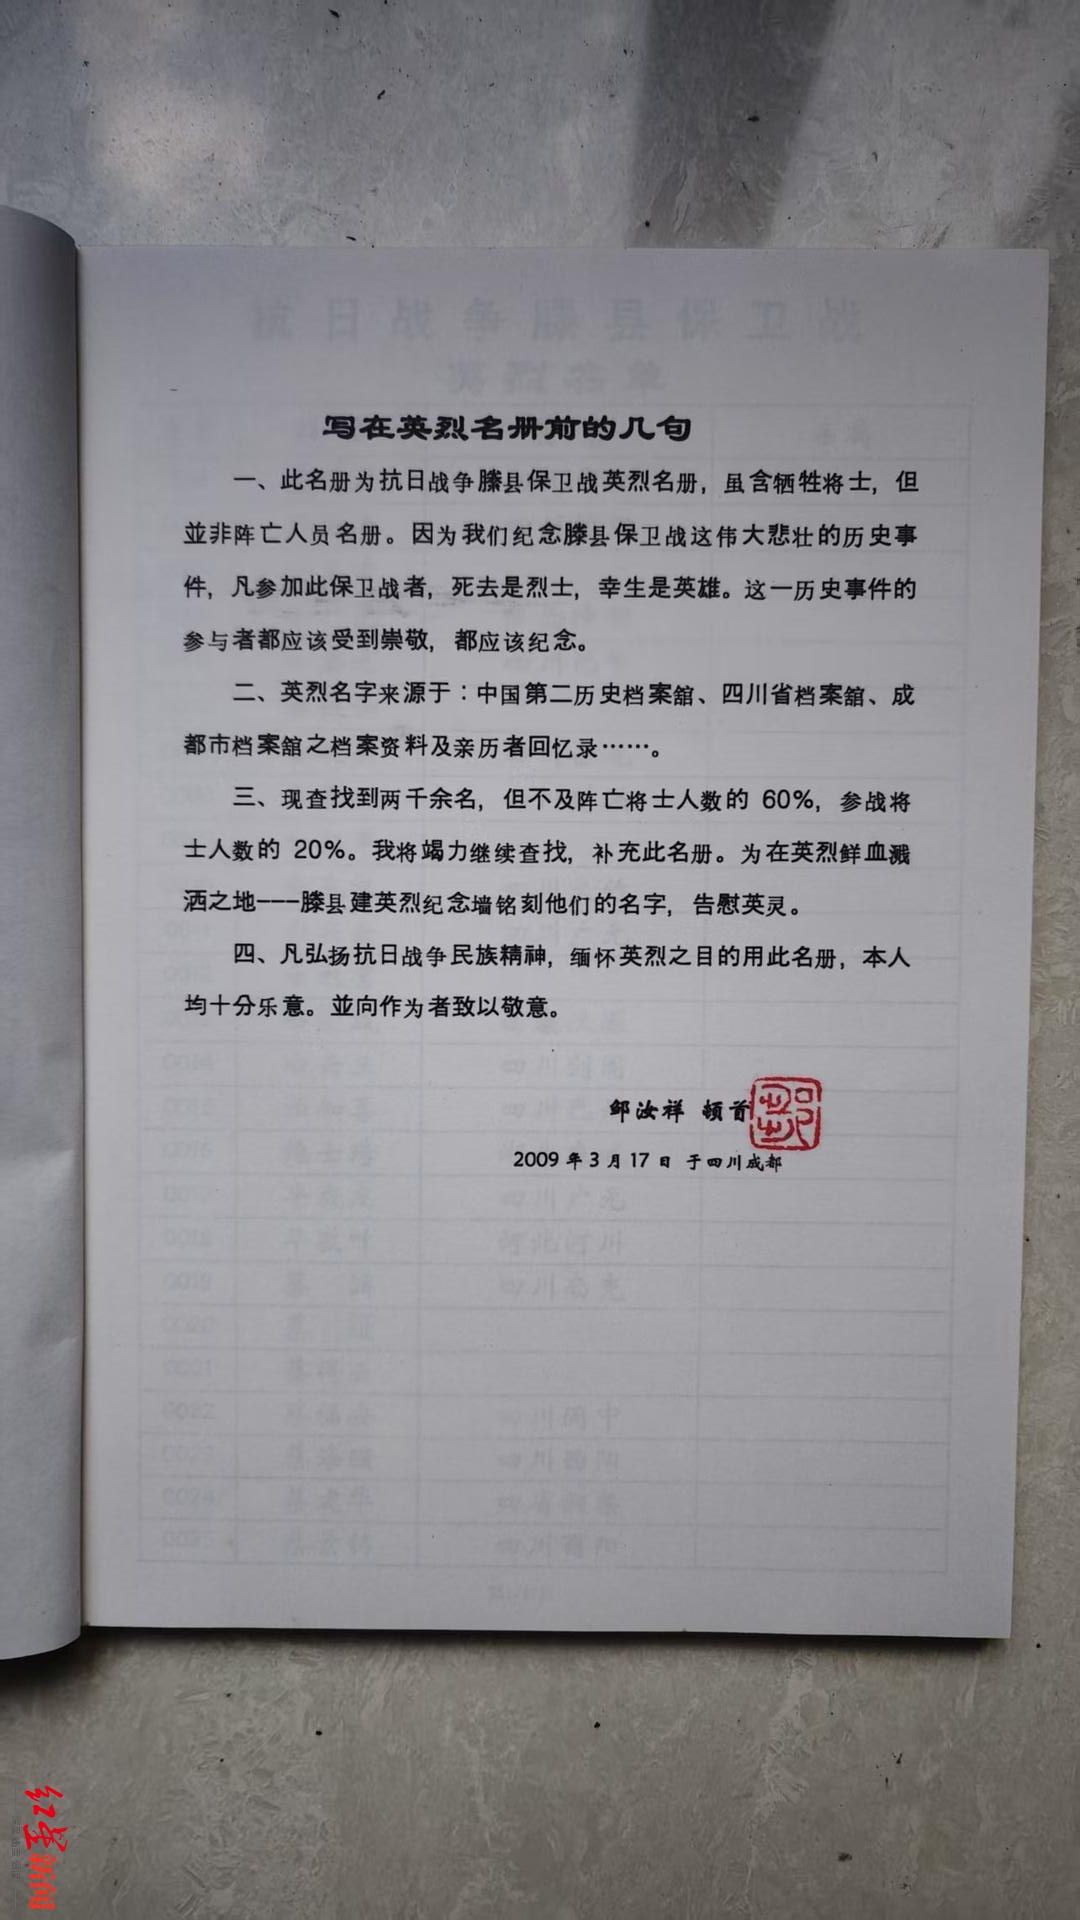 抗日战争滕县保卫战
英烈名单
写在英烈名册前的几句
一、此名册为抗日战争滕县保卫战英烈名册，虽含牺牲将士，但
並非阵亡人员名册。因为我们纪念滕县保卫战这伟大悲壮的历史事
件，凡参加此保卫战者，死去是烈士，幸生是英雄。这一历史事件的
参与者都应该受到崇敬，都应该纪念。
二、英烈名字来源于：中国第二历史档案舘、四川省档案舘、成
都市档案舘之档案资料及亲历者回忆录……。
三、现查找到两千余名，但不及阵亡将士人数的 60%，参战将
士人数的 20%。我将竭力继续查找，补充此名册。为在英烈鲜血溅
洒之地---滕县建英烈纪念墙铭刻他们的名字，告慰英灵。
四、凡弘扬抗日战争民族精神，缅怀英烈之目的用此名册，本人
均十分乐意。並向作为者致以敬意。
邹汝祥 顿首
2009 年 3 月 17 日 于四川成都
0016
四川广元
0018 河北河川
0019 四川南充
0020
0021
0022 四川阆中
0023 四川酉阳
0024
0025 四川酉阳
红星新闻